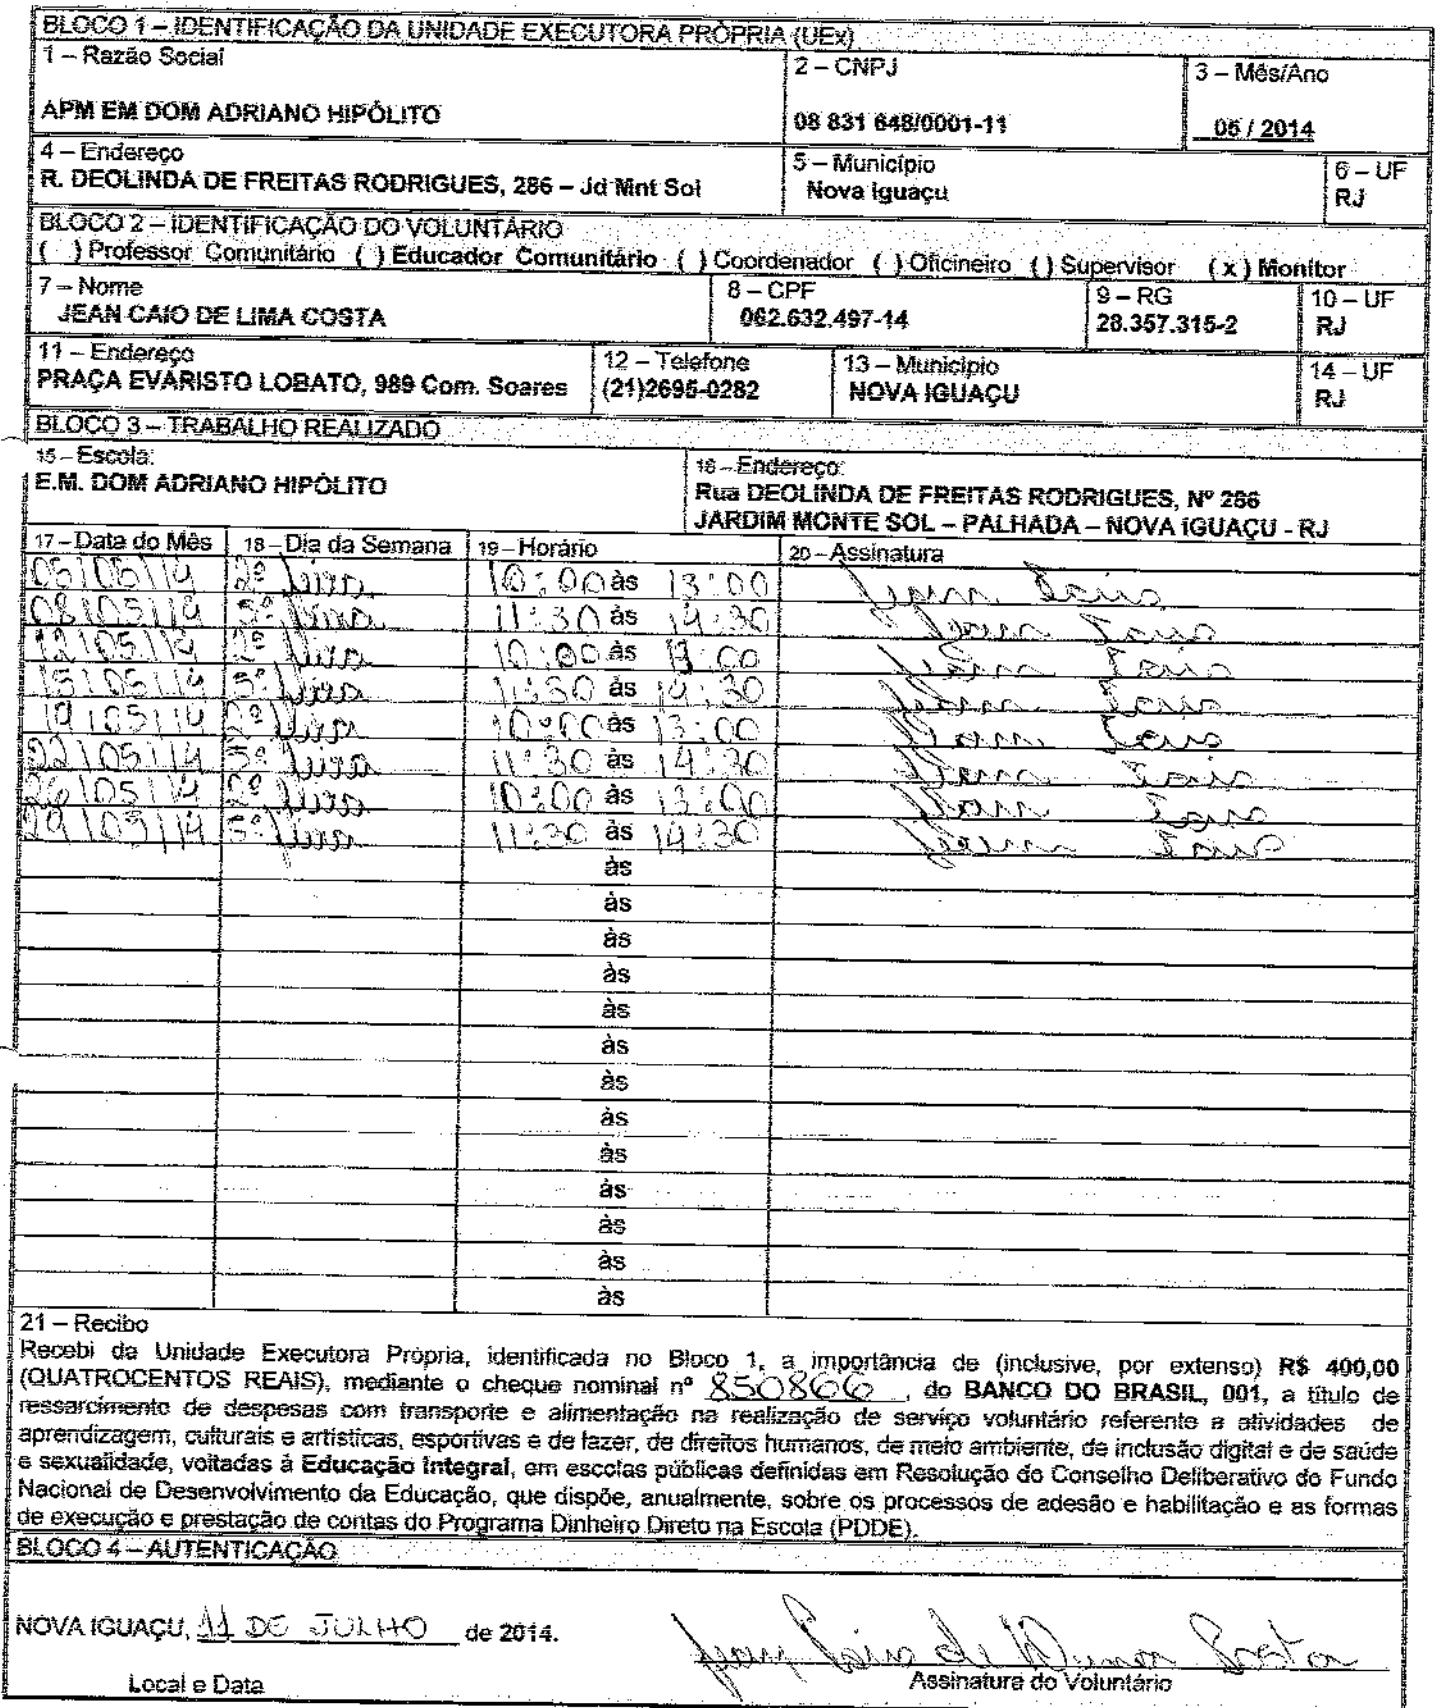 BLOCO 1 – IDENTIFICAÇÃO DA UNIDADE EXECUTORA PRÓPRIA (UEx)
1 – Razão Social
2 – CNPJ
3 – Mês/Ano
APM EM DOM ADRIANO HIPÓLITO
08 831 648/0001-11
05 / 2014
4 – Endereço
5 – Município
6 – UF
R. DEOLINDA DE FREITAS RODRIGUES, 286 – Jd Mnt Sol
Nova Iguaçu
RJ
BLOCO 2 – IDENTIFICAÇÃO DO VOLUNTÁRIO
( ) Professor Comunitário ( ) Educador Comunitário ( ) Coordenador ( ) Oficineiro ( ) Supervisor ( x ) Monitor
7 – Nome
8 – CPF
9 – RG
10 – UF
JEAN CAIO DE LIMA COSTA
062.632.497-14
28.357.315-2
RJ
11 – Endereço
12 – Telefone
13 – Município
14 – UF
PRAÇA EVARISTO LOBATO, 989 Com. Soares
(21)2695-0282
NOVA IGUAÇU
RJ
BLOCO 3 – TRABALHO REALIZADO
15 – Escola:
16 – Endereço:
E.M. DOM ADRIANO HIPÓLITO
Rua DEOLINDA DE FREITAS RODRIGUES, Nº 286
JARDIM MONTE SOL – PALHADA – NOVA IGUAÇU - RJ
17 – Data do Mês 18 – Dia da Semana 19 – Horário 20 – Assinatura
05/05/14 2ª feira 10:00 às 13:00 Jean Caio
08/05/14 5ª feira 11:30 às 14:30 Jean Caio
12/05/14 2ª feira 10:00 às 13:00 Jean Caio
15/05/14 5ª feira 11:30 às 14:30 Jean Caio
19/05/14 2ª feira 10:00 às 13:00 Jean Caio
22/05/14 5ª feira 11:30 às 14:30 Jean Caio
26/05/14 2ª feira 10:00 às 13:00 Jean Caio
29/05/14 5ª feira 11:30 às 14:30 Jean Caio
às
às
às
às
às
às
às
às
às
às
às
às
às
21 – Recibo
Recebi da Unidade Executora Própria, identificada no Bloco 1, a importância de (inclusive, por extenso) R$ 400,00
(QUATROCENTOS REAIS), mediante o cheque nominal nº 850866 , do BANCO DO BRASIL, 001, a título de
ressarcimento de despesas com transporte e alimentação na realização de serviço voluntário referente a atividades de
aprendizagem, culturais e artísticas, esportivas e de lazer, de direitos humanos, de meio ambiente, de inclusão digital e de saúde
e sexualidade, voltadas à Educação Integral, em escolas públicas definidas em Resolução do Conselho Deliberativo do Fundo
Nacional de Desenvolvimento da Educação, que dispõe, anualmente, sobre os processos de adesão e habilitação e as formas
de execução e prestação de contas do Programa Dinheiro Direto na Escola (PDDE).
BLOCO 4 – AUTENTICAÇÃO
NOVA IGUAÇU, 11 DE JULHO de 2014.
Jean Caio de Lima Costa
Local e Data
Assinatura do Voluntário